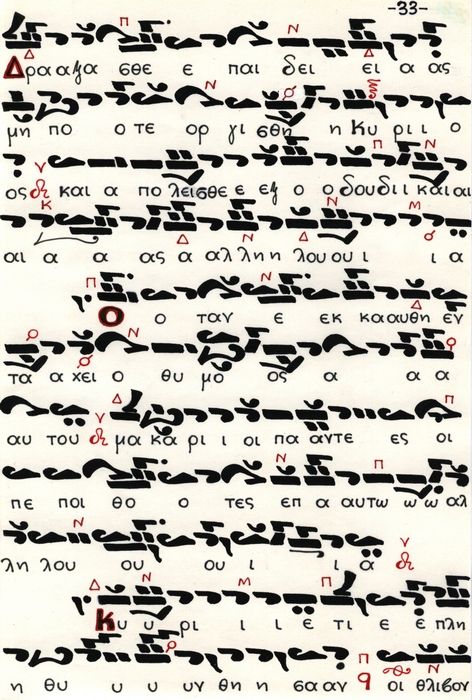 -33-
Δρα α ξα σθε ε παι δει ει α ας
μη πο ο τε ορ γι σθη η Κυ ρι ι ο
ος και α πο λεισθε ε εξ ο ο δου δι ι και αι
αι α α ας α αλ λη λη λου ου ι ι α
Ο ο ταν ε εκ καυθη εν
τα α χει ο θυ μο ος α α α
αυ του μα κα ρι ι οι πα αντε ες οι
πε ποι θο ο τες ε π α αυτω ω ω αλ
λη λου ου ου ι ι α
Κυ υ ρι ι ι ε τι ε ε πλη
η θυ υ υ υν θη η σα αν οι θλιβον